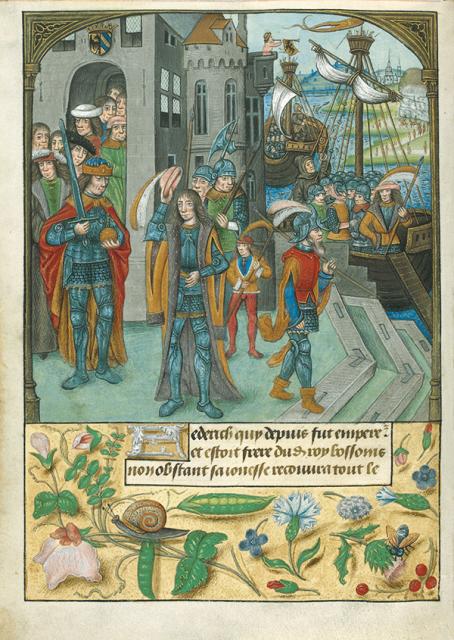 Federich quy depuis fut empere
et estoit frere du d roy bossonis
non obstant sa ionesse recouura tout le